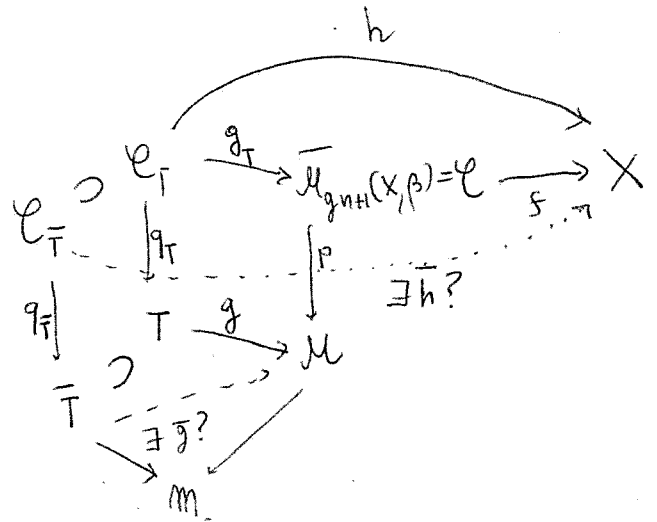 h
𝒞_T g_T M̄_{g n+1}(X, β) = 𝒞 f X
𝒞_T̄ ⊃
q_T p ∃ h̄?
q_T̄ T g M
T̄ ⊃
∃ ḡ?
m.